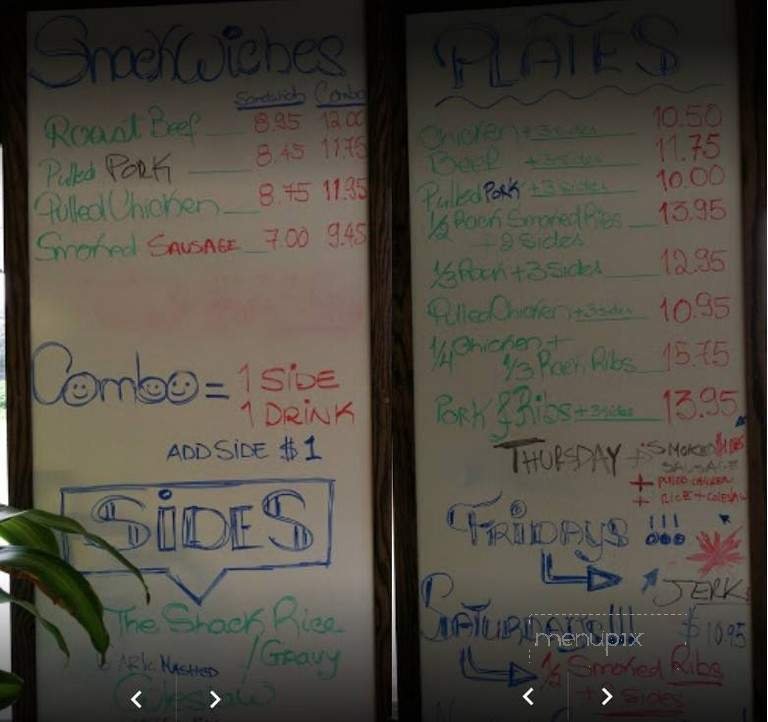 SnackWiches
Sandwich Combo
Roast Beef 8.95 12.00
Pulled PORK 8.45 11.75
Pulled Chicken 8.75 11.95
Smoked SAUSAGE 7.00 9.45
Combo = 1 SiDE
1 DRiNK
ADD SIDE $1
SiDES
The Shack Rice
/Gravy
MASHED
Coleslaw
PLATES
Chicken +3 sides 10.50
Beef +3 sides 11.75
Pulled PORK +3 sides 10.00
1/2 Rack Smoked Ribs 13.95
+2 Sides
1/3 Rack +3 Sides 12.95
Pulled Chicken +3 sides 10.95
1/4 Chicken +
1/3 Rack Ribs 15.75
PORK & Ribs +3 sides 13.95
THURSDAY SMOKED
SAUSAGE
+ PULLED CHICKEN
+ RICE + COLESLAW
FRiDAYS !!!
JERK
SATURDAYS!!! $10.95
menupix
1/2 Smoked Ribs
+ Sides